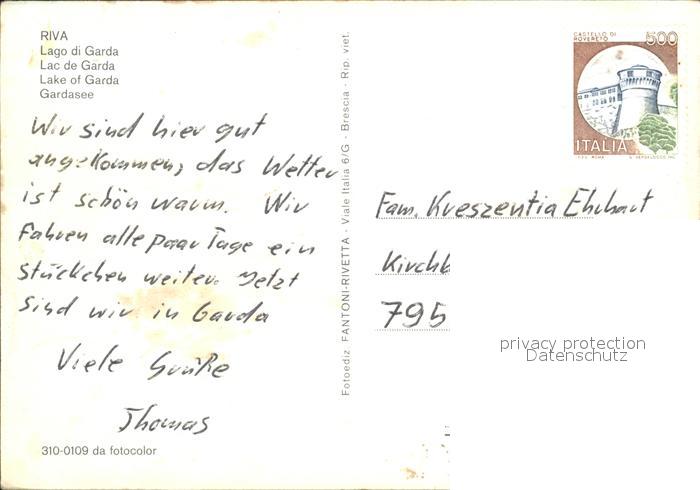 RIVA
Lago di Garda
Lac de Garda
Lake of Garda
Gardasee
Wir sind hier gut
angekommen, das Wetter
ist schön warm. Wir
fahren alle paar Tage ein
Stückchen weiter. Jetzt
sind wir in Garda
Viele Grüße
Thomas
310-0109 da fotocolor
Fotoediz. FANTONI-RIVETTA - Viale Italia 6/G - Brescia - Rip. viet.
CASTELLO DI
ROVERETO
500
ITALIA
Fam. Kreszentia Ehrhart
Kirchb
795
privacy protection
Datenschutz